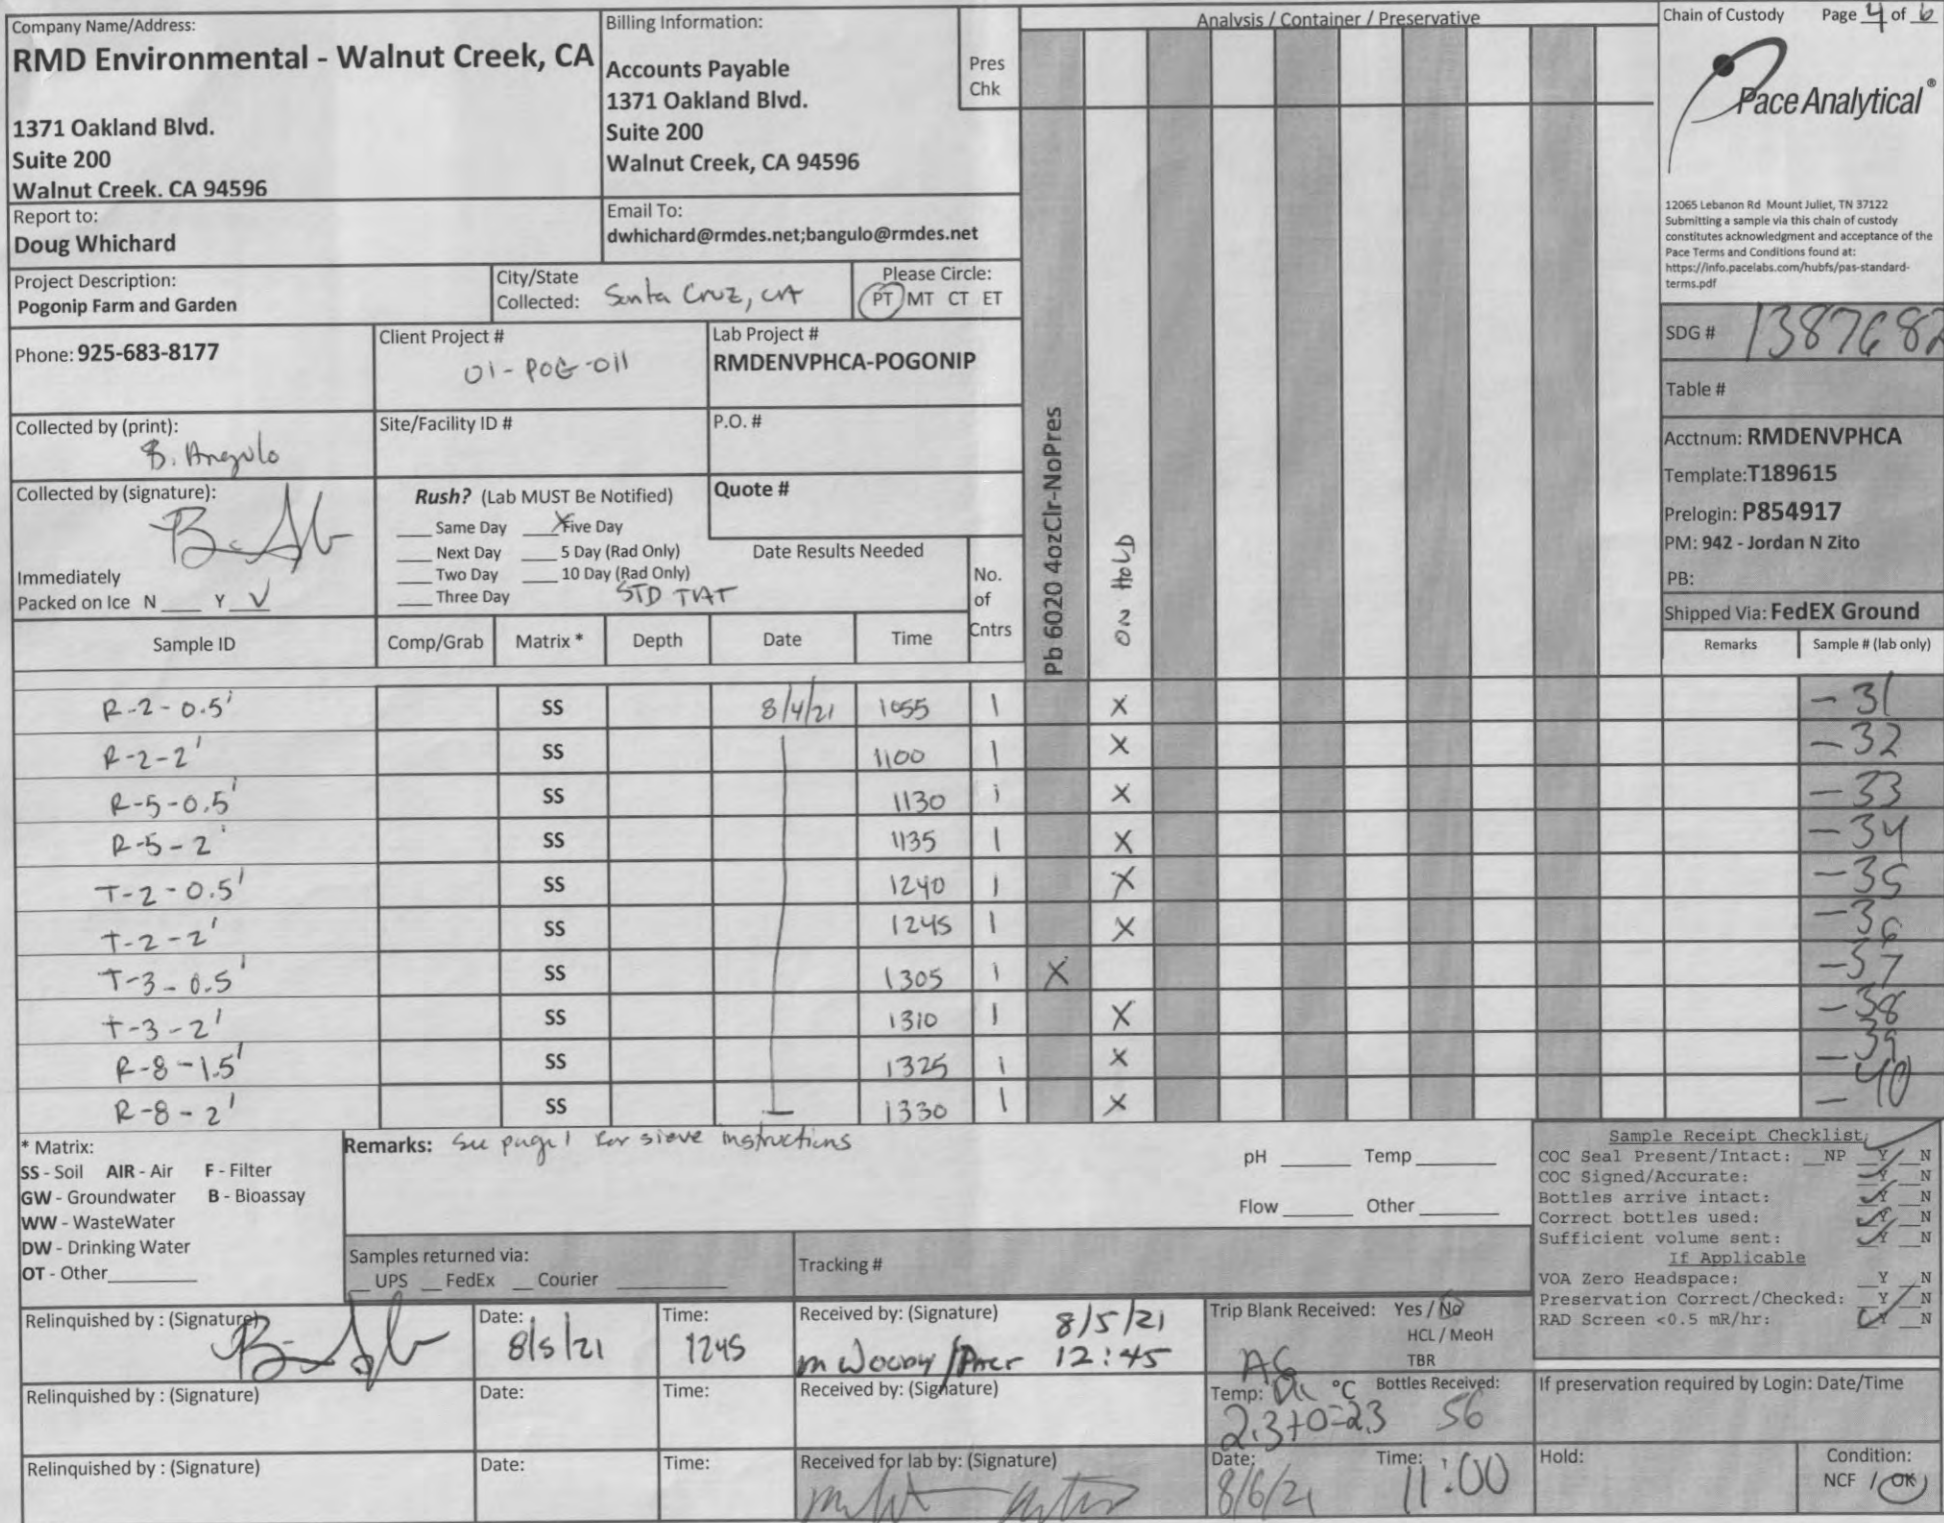 Company Name/Address:
RMD Environmental - Walnut Creek, CA
1371 Oakland Blvd.
Suite 200
Walnut Creek. CA 94596
Billing Information:
Accounts Payable
1371 Oakland Blvd.
Suite 200
Walnut Creek, CA 94596
Pres
Chk
Analysis / Container / Preservative
Chain of Custody Page 4 of 6
Pace Analytical®
12065 Lebanon Rd Mount Juliet, TN 37122
Submitting a sample via this chain of custody
constitutes acknowledgment and acceptance of the
Pace Terms and Conditions found at:
https://info.pacelabs.com/hubfs/pas-standard-
terms.pdf
Report to:
Doug Whichard
Email To:
dwhichard@rmdes.net;bangulo@rmdes.net
Project Description:
Pogonip Farm and Garden
City/State
Collected: Santa Cruz, CA
Please Circle:
PT MT CT ET
Phone: 925-683-8177
Client Project #
01-POG-011
Lab Project #
RMDENVPHCA-POGONIP
SDG # 1387682
Table #
Collected by (print):
B. Angulo
Site/Facility ID #
P.O. #
Acctnum: RMDENVPHCA
Template:T189615
Prelogin: P854917
PM: 942 - Jordan N Zito
PB:
Shipped Via: FedEX Ground
Collected by (signature):
Immediately
Packed on Ice N ___ Y √
Rush? (Lab MUST Be Notified)
___ Same Day X Five Day
___ Next Day ___ 5 Day (Rad Only)
___ Two Day ___ 10 Day (Rad Only)
___ Three Day STD TAT
Quote #
Date Results Needed
No.
of
Cntrs
Pb 6020 4ozClr-NoPres
ON HOLD
Sample ID Comp/Grab Matrix * Depth Date Time Remarks Sample # (lab only)
R-2-0.5' SS 8/4/21 1055 1 X -31
R-2-2' SS 1100 1 X -32
R-5-0.5' SS 1130 1 X -33
R-5-2' SS 1135 1 X -34
T-2-0.5' SS 1240 1 X -35
T-2-2' SS 1245 1 X -36
T-3-0.5' SS 1305 1 X -37
T-3-2' SS 1310 1 X -38
R-8-1.5' SS 1325 1 X -39
R-8-2' SS 1330 1 X -40
* Matrix:
SS - Soil AIR - Air F - Filter
GW - Groundwater B - Bioassay
WW - WasteWater
DW - Drinking Water
OT - Other
Remarks: See page 1 for sieve instructions
pH ___ Temp ___
Flow ___ Other ___
Sample Receipt Checklist
COC Seal Present/Intact: __NP __Y __N
COC Signed/Accurate: __Y __N
Bottles arrive intact: __Y __N
Correct bottles used: __Y __N
Sufficient volume sent: __Y __N
If Applicable
VOA Zero Headspace: __Y __N
Preservation Correct/Checked: __Y __N
RAD Screen <0.5 mR/hr: __Y __N
Samples returned via:
__UPS __FedEx __Courier
Tracking #
Relinquished by : (Signature)
Date: 8/5/21
Time: 1245
Received by: (Signature)
m Woody / Pace 8/5/21 12:45
Trip Blank Received: Yes / No
HCL / MeoH
TBR
Relinquished by : (Signature)
Date:
Time:
Received by: (Signature)
Temp: °C Bottles Received:
2.3+0=2.3 56
If preservation required by Login: Date/Time
Relinquished by : (Signature)
Date:
Time:
Received for lab by: (Signature)
Date: 8/6/21
Time: 11:00
Hold:
Condition:
NCF / OK